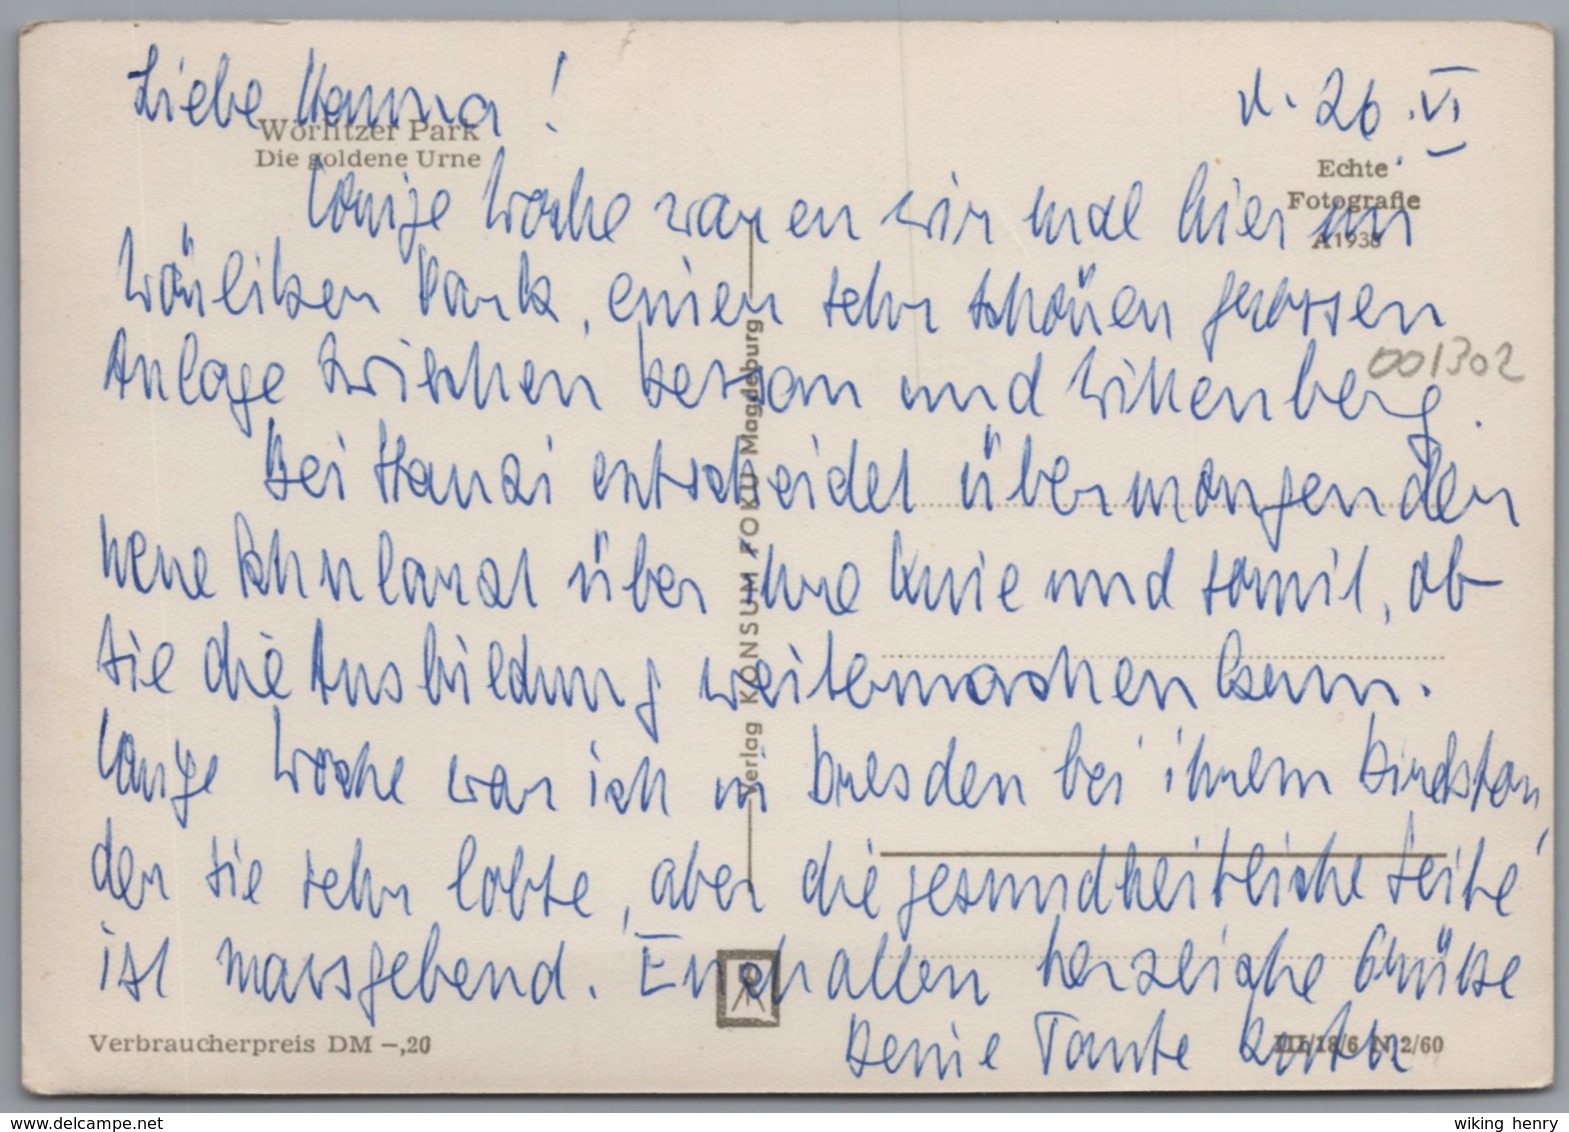 Liebe Hanna!
d. 26. VI
Wörlitzer Park
Die goldene Urne
Echte
Fotografie
A 1938
Vorige Woche waren wir mal hier im
Wörlitzer Park, einen sehr schönen grossen
Anlage zwischen Dessau und Wittenberg.
001302
Bei Hansi entscheidet übermorgen der
neue über ihre Knie und somit, ob
sie die Ausbildung weitermachen kann.
Vorige Woche war ich in Dresden bei ihrem
der sie sehr lobte, aber die gesundheitliche Seite
ist massgebend. Euch allen herzliche Grüsse
Deine Tante Käthe
Verlag KONSUM FOKU Magdeburg
Verbraucherpreis DM -,20
III/18/6 N 2/60
www.delcampe.net
wiking henry